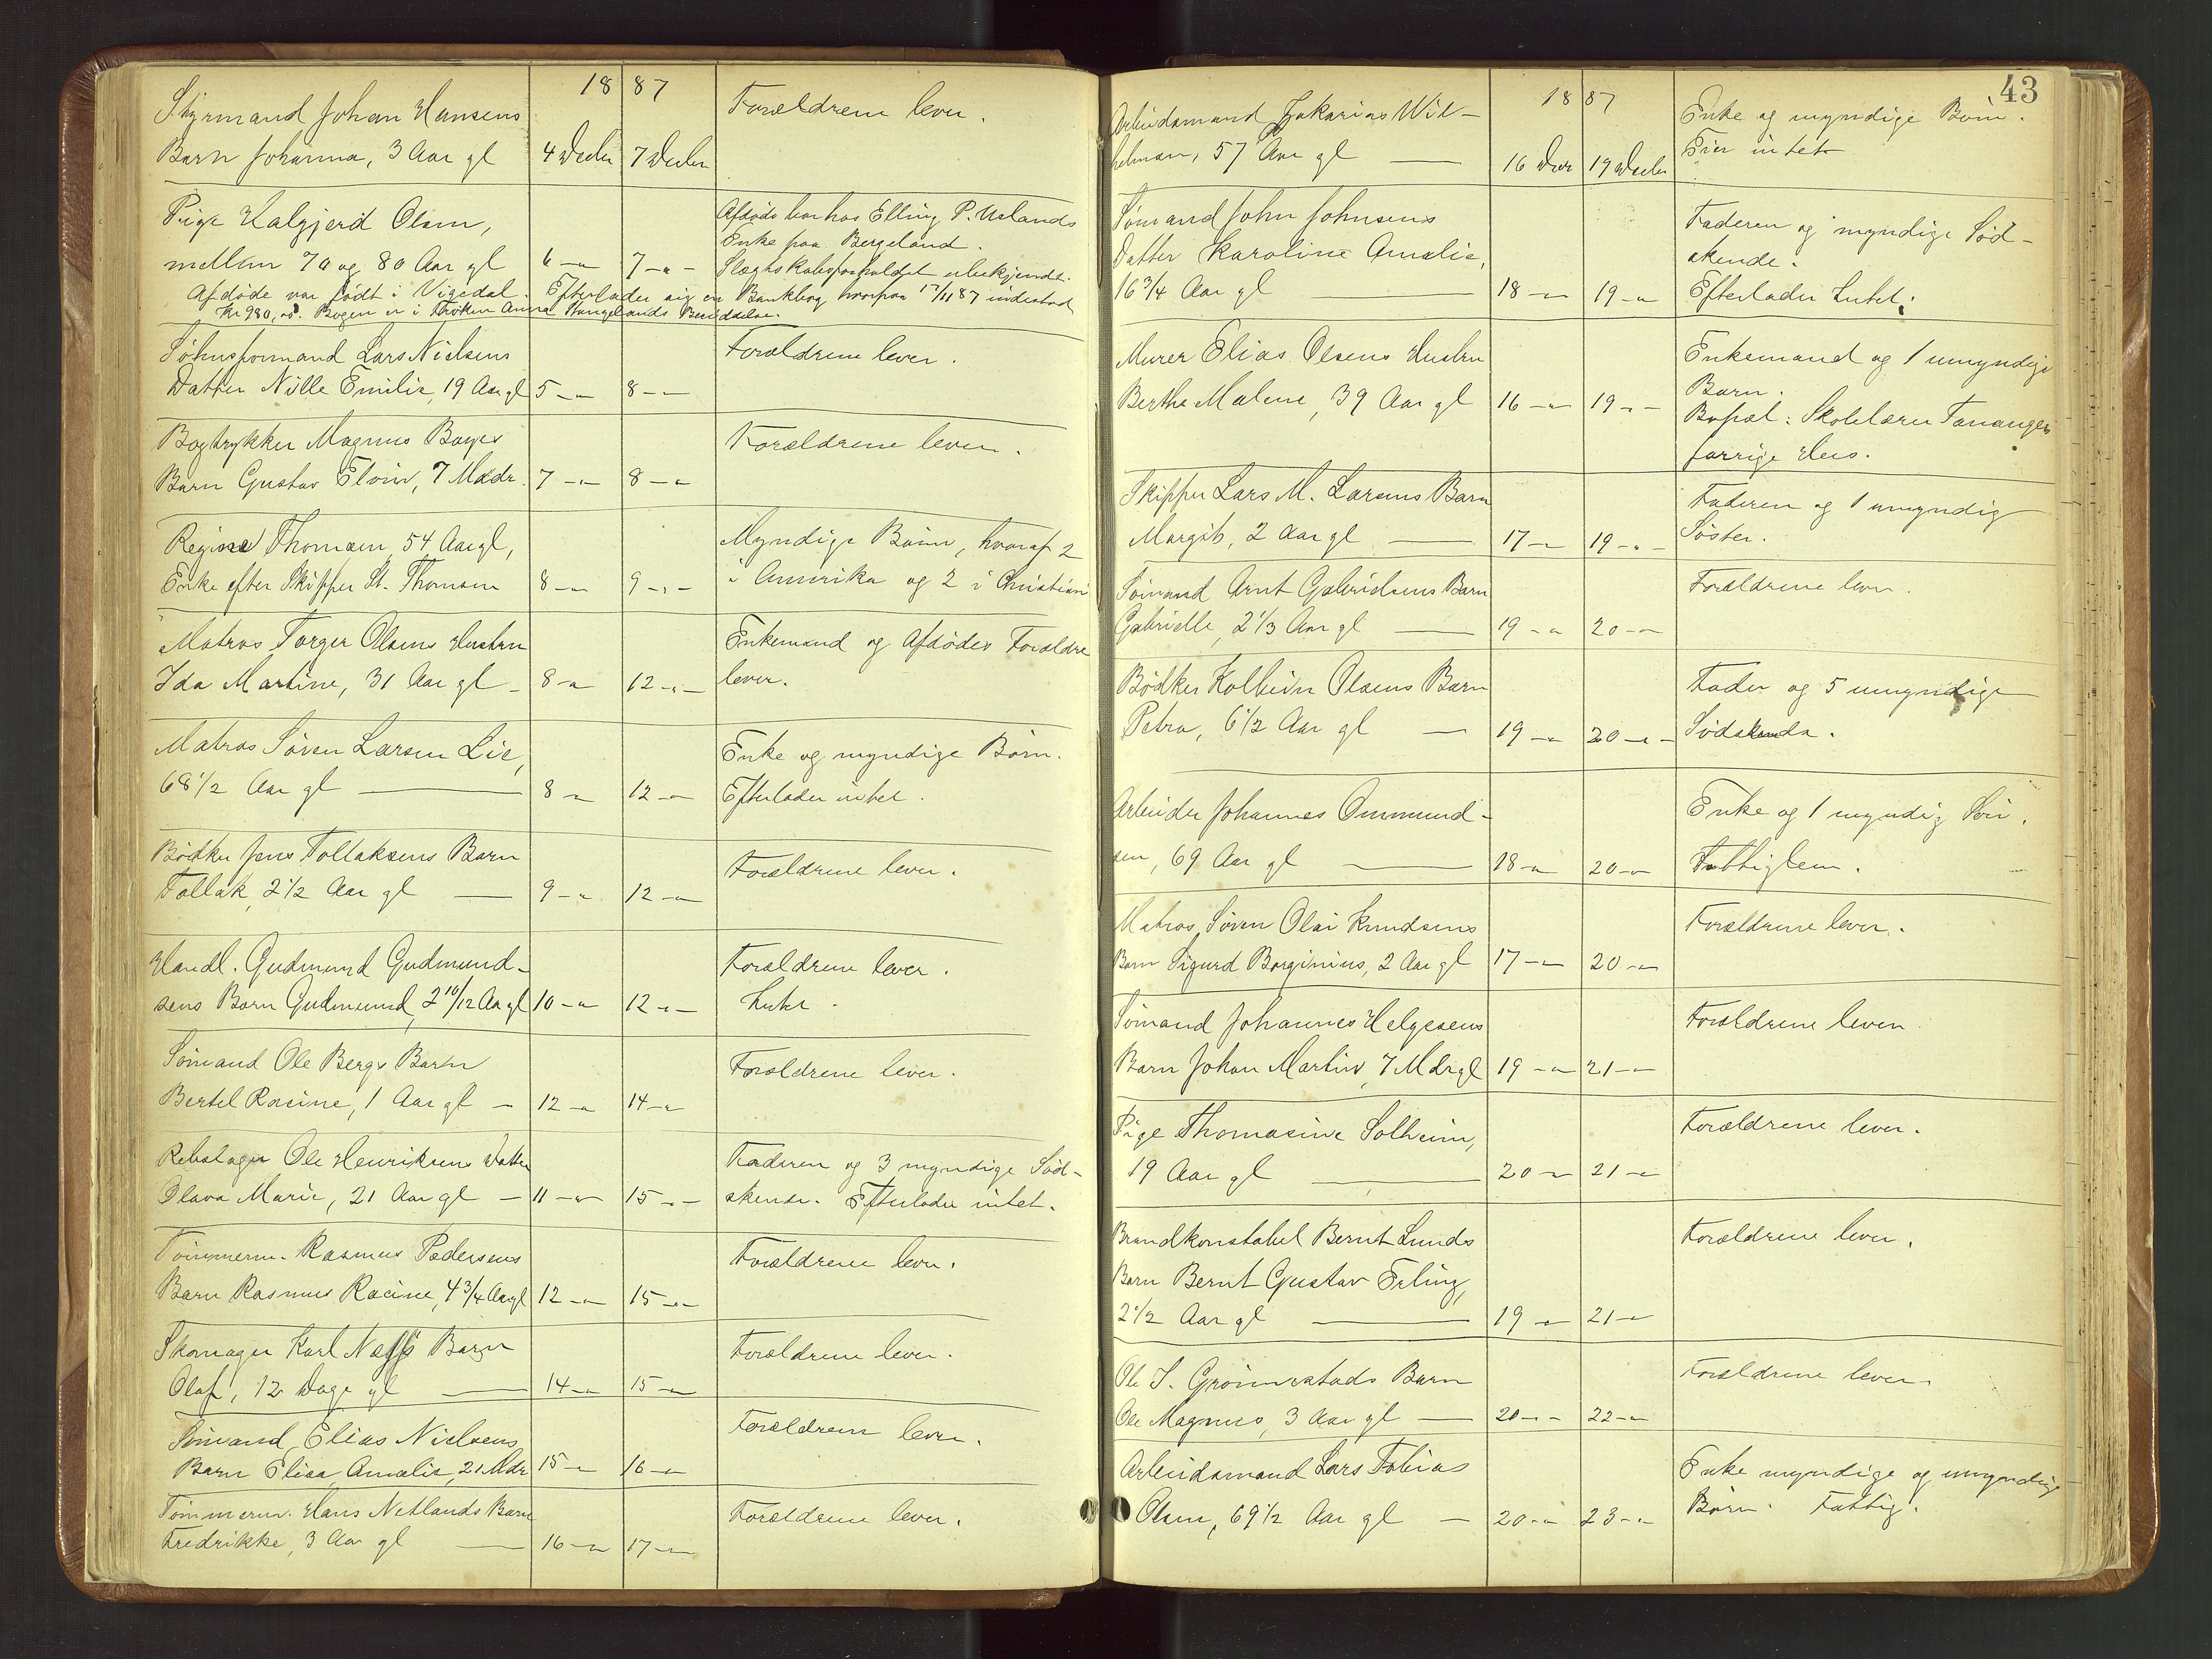 18 87
Styrmand Johan Hansens
Barn Johanna, 3 Aar gl 4 Decbr 7 Decbr Forældrene lever.
Pige Halgjerd Olsen,
mellem 70 og 80 Aar gl 6 -"- 7 -"-
Afdøde var hos Elling P. Uelands
Enke paa Bergeland.
Slægtskabsforholdet ubekjendt.
Afdøde var født i Vigedal. Efterlader sig en Bankbog hvorpaa 17/11 87 indestod
Kr 980,00. Bogen er i Frøken Anna Stangelands Besiddelse.
Formand Lars Nielsens
Datter Nille Emilie, 19 Aar gl 5 -"- 8 -"- Forældrene lever.
Bogtrykker Magnus Boyes
Barn Gustav Elvin, 7 Mdr. 7 -"- 8 -"- Forældrene lever.
Regine Thomsen, 54 Aar gl,
Enke efter Skipper St. Thomsen 8 -"- 9 -"-
Myndige Børn, hvoraf 2
i Amerika og 2 i Christian
Matros Torger Olsens Hustru
Ida Martine, 31 Aar gl - 8 -"- 12 -"-
Enkemand og Afdødes Forældre
lever.
Matros Søren Larsen Lie,
68 1/2 Aar gl — 8 -"- 12 -"-
Enke og myndige Børn.
Efterlader intet.
Bødker Jens Tollaksens Barn
Tollak, 2 1/2 Aar gl — 9 -"- 12 -"- Forældrene lever.
Handl. Gudmund Gudmund-
sens Barn Gudmund, 2 10/12 Aar gl 10 -"- 12 -"-
Forældrene lever.
Sømand Ole Bergs Barn
Bertel Racine, 1 Aar gl — 12 -"- 14 -"- Forældrene lever.
Rebslager Ole Henriksens Datter
Olava Marie, 21 Aar gl — 11 -"- 15 -"-
Faderen og 3 myndige Sød-
skende. Efterlader intet.
Tømmerm. Rasmus Pedersens
Barn Rasmus Racine, 4 3/4 Aar gl 12 -"- 15 -"- Forældrene lever.
Skomager Karl Næss Barn
Olaf, 12 Dage gl — 14 -"- 15 -"- Forældrene lever.
Sømand Elias Nielsens
Barn Elisa Amalie, 21 Mdr 15 -"- 16 -"- Forældrene lever.
Tømmerm. Hans Netlands Barn
Fredrikke, 3 Aar gl — 16 -"- 17 -"- Forældrene lever.
43
18 87
Arbeidsmand Zakarias Wil-
helmsen, 57 Aar gl — 16 Decbr 19 Decbr
Enke og myndige Børn.
Eier intet
Sømand John Johnsens
Datter Karoline Amalie,
16 3/4 Aar gl — 18 -"- 19 -"-
Faderen og myndige Sød-
skende.
Efterlader Intet.
Murer Elias Olsens Hustru
Berthe Malene, 39 Aar gl 16 -"- 19 -"-
Enkemand og 1 umyndige
Barn.
Bopæl: Skolelærer Tananger
forrige Hus.
Skipper Lars M. Larsens Barn
Margit, 2 Aar gl — 17 -"- 19 -"-
Faderen og 1 umyndig
Søster.
Sømand Arnt Gabrielsens Barn
Gabrielle, 2 1/3 Aar gl — 19 -"- 20 -"- Forældrene lever.
Bødker Kolbein Olsens Barn
Petra, 6 1/2 Aar gl — 19 -"- 20 -"-
Fader og 5 umyndige
Sødskende.
Arbeider Johannes Ommund-
sen, 69 Aar gl — 18 -"- 20 -"-
Enke og 1 myndig Søn.
Fattiglem.
Matros Søren Olai Knudsens
Barn Sigurd Borginius, 2 Aar gl 17 -"- 20 -"- Forældrene lever.
Sømand Johannes Helgesens
Barn Johan Martin, 7 Mdr gl 19 -"- 21 -"- Forældrene lever
Pige Thomasine Solheim,
19 Aar gl — 20 -"- 21 -"- Forældrene lever.
Brandkonstabel Bernt Lunds
Barn Bernt Gustav Erling,
2 1/2 Aar gl — 19 -"- 21 -"- Forældrene lever.
Ole S. Grønnestads Barn
Ole Magnus, 3 Aar gl — 20 -"- 22 -"- Forældrene lever.
Arbeidsmand Lars Tobias
Olsen, 69 1/2 Aar gl — 20 -"- 23 -"-
Enke myndige og umyndige
Børn. Fattig.